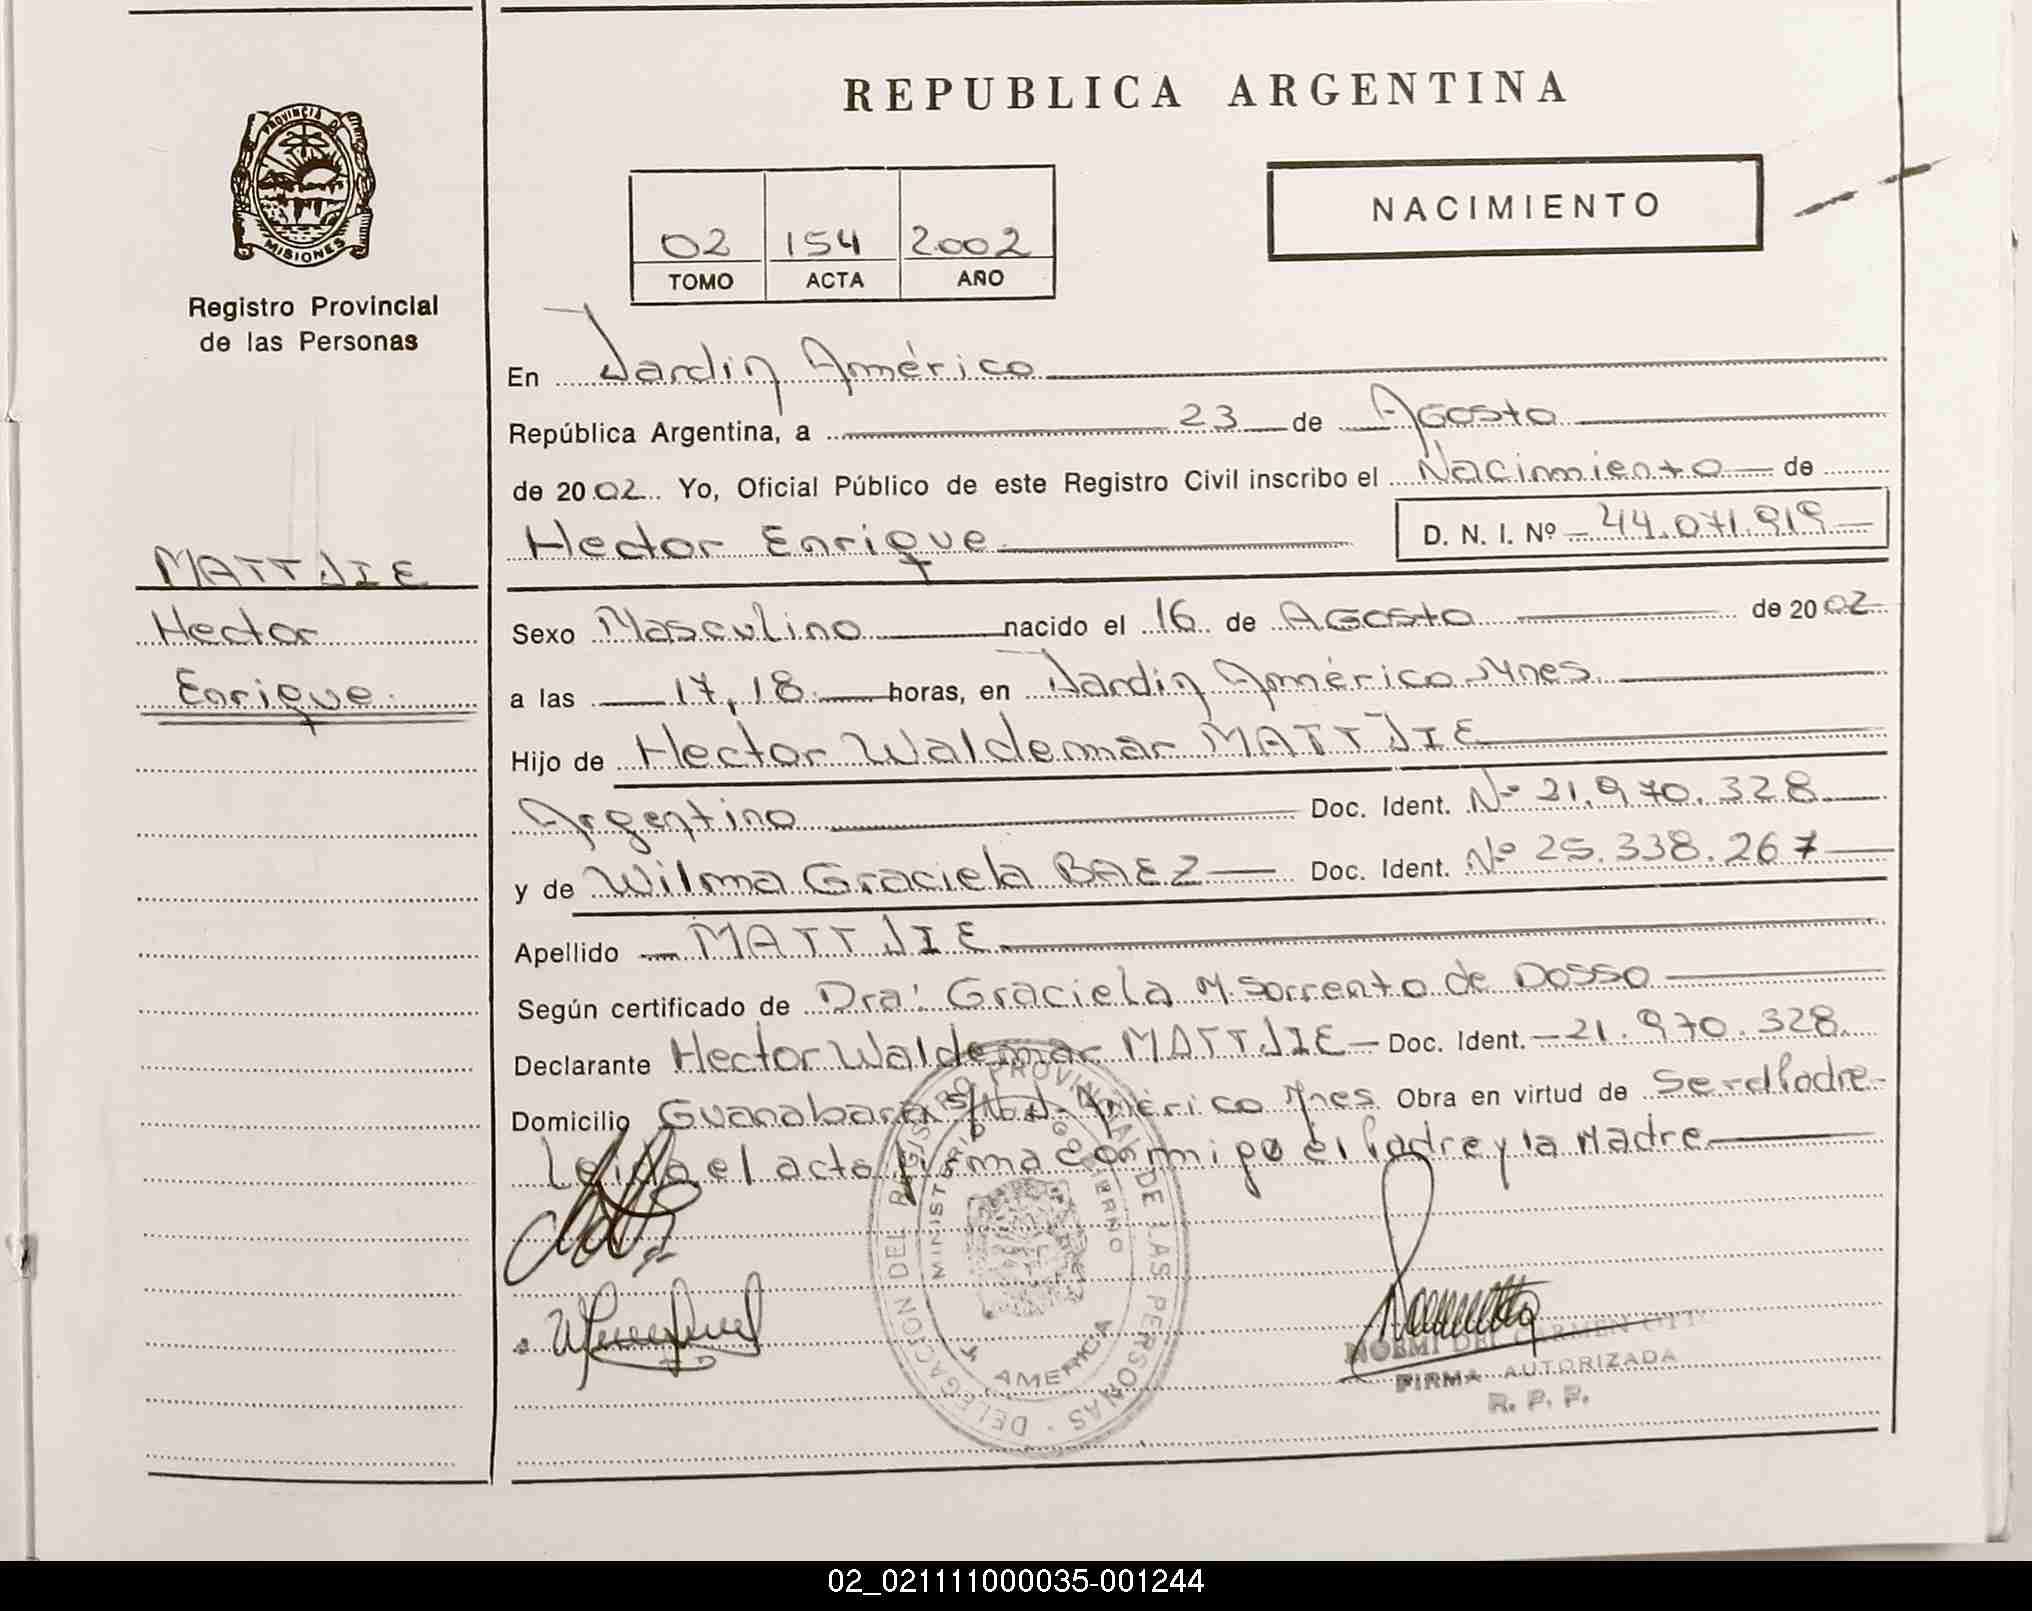 REPUBLICA ARGENTINA
PROVINCIA DE
MISIONES
Registro Provincial
de las Personas
NACIMIENTO
02 154 2002
TOMO ACTA AÑO
En Jardin América
República Argentina, a 23 de Agosto
de 2002 Yo, Oficial Público de este Registro Civil inscribo el Nacimiento de
Hector Enrique D. N. I. Nº 44.071.919
MATTJIE
Hector
Enrique
Sexo Masculino nacido el 16 de Agosto de 2002
a las 17,18 horas, en Jardin América Mnes.
Hijo de Hector Waldemar MATTJIE
Argentino Doc. Ident. Nº 21.970.328
y de Wilma Graciela BAEZ Doc. Ident. Nº 25.338.267
Apellido MATTJIE
Según certificado de Dra: Graciela M. Sorrento de Dosso
Declarante Hector Waldemar MATTJIE Doc. Ident. 21.970.328
Domicilio Guanabara s/Nº J. América Mnes Obra en virtud de Ser el Padre
Leida el acta firma conmigo el Padre y la Madre
DELEGACION DEL REGISTRO PROVINCIAL DE LAS PERSONAS
MINISTERIO GOBIERNO
J. AMERICA
NOEMI DEL CARMEN OTTO
FIRMA AUTORIZADA
R. P. P.
02_021111000035-001244